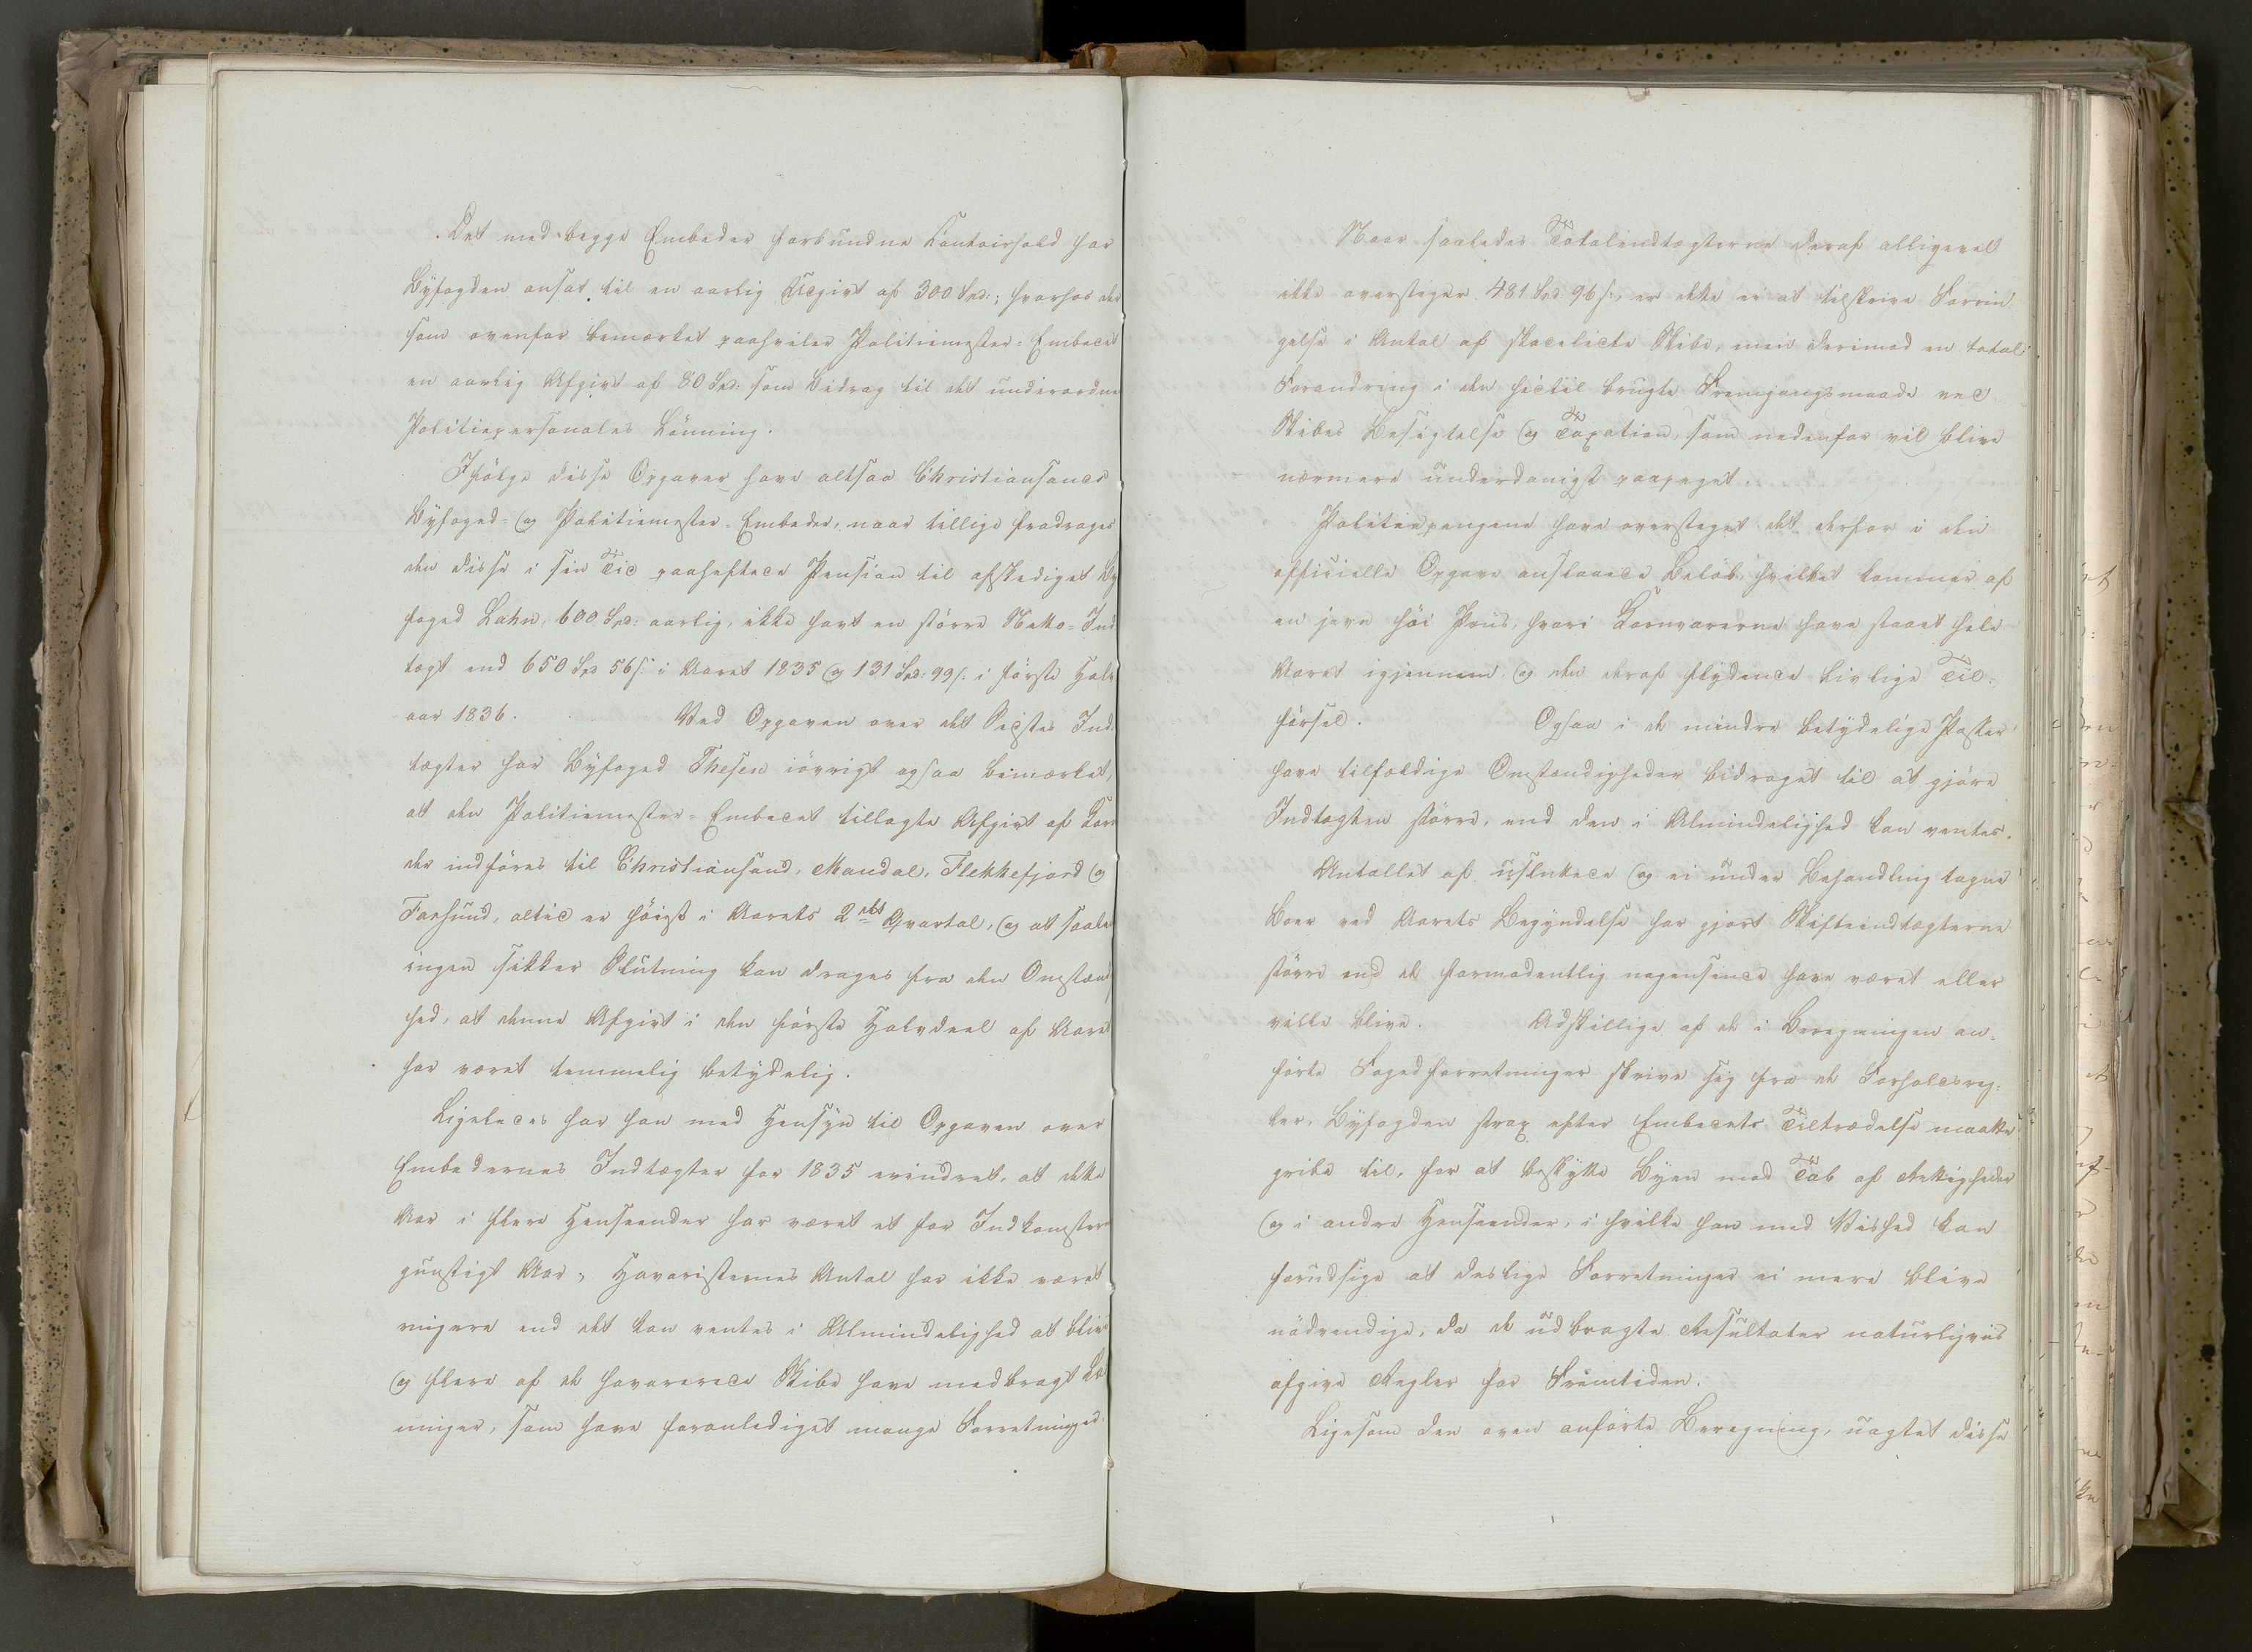 Det med begge Embeder forbundne Contoirhold har
Byfogden ansat til en aarlig Udgivt af 300 Spd:; hvorhos der
som ovenfor bemærket paahviler Politiemester-Embedet
en aarlig Afgivt af 80 Spd: som Bidrag til det underordne
Politiepersonales Lønning.
Ifølge disse Opgaver have altsaa Christiansands
Byfoged- og Politiemester-Embeder, naar tillige fradrages
den disse i sin Tid paaheftede Pension til afskediget By
foged Lahn, 600 Spd: aarlig, ikke havt en større Netto-Ind
tægt end 650 Spd 56 s: i Aaret 1835 og 131 Spd: 99 s: i første Halv
aar 1836. Ved Opgaven over det Sidstes Ind
tægter har Byfoged Thesen iøvrigt ogsaa bemærket,
at den Politiemester-Embedet tillagte Afgivt af Korn
der indføres til Christiansand, Mandal, Flekkefjord og
Farsund, altid er høist i Aarets 2det Qvartal, og at saale
ingen sikker Slutning kan drages fra den Omstænd
hed, at denne Afgivt i den første Halvdeel af Aaret
har været temmelig betydelig.
Ligeledes har han med Hensyn til Opgaven over
Embedernes Indtægter for 1835 erindret, at dette
Aar i flere Henseender har været et for Indkomstern
gunstigt Aar, Havaristernes Antal har ikke været
ringere end det kan ventes i Almindelighed at blive
og flere af de havarerede Skibe have medbragt Lad
ninger, som have foranlediget mange Forretninger.
Naar saaledes Totalindtægterne deraf alligevel
ikke overstiger 481 Spd: 96 s:, er dette ei at tilskrive Forrin
gelse i Antal af skadelidte Skibe, men derimod en total
Forandring i den hidtil brugte Fremgangsmaade ved
Skibes Besigtelse og Taxation, som nedenfor vil blive
nærmere underdanigst paapeget.
Politiepengene have oversteget det derfor i den
officielle Opgave anslaaede Beløb, hvilket kommer af
en jevn høi Priis, hvori Kornvarerne have staaet hele
Aaret igjennem, og den deraf flydende livlige Til-
førsel. Ogsaa i de mindre betydelige Poster
have tilfældige Omstændigheder bidraget til at gjøre
Indtægten større, end den i Almindelighed kan ventes.
Antallet af usluttede og ei under Behandling tagne
Boer ved Aarets Begyndelse har gjort Skifteindtægterne
større end de formodentlig nogensinde have været eller
ville blive. Adskillige af de i Beregningen an-
førte Fogedforretninger skrive sig fra de Forholdsreg-
ler, Byfogden strax efter Embedets Tiltrædelse maatte
gribe til, for at beskytte Byen mod Tab af Rettigheder
og i andre Henseender, i hvilke han med Vished kan
forudsige at deslige Forretninger ei mere blive
nødvendige, da de udbragte Resultater naturligviis
afgive Regler for Fremtiden.
Ligesom den oven anførte Beregning, uagtet disse